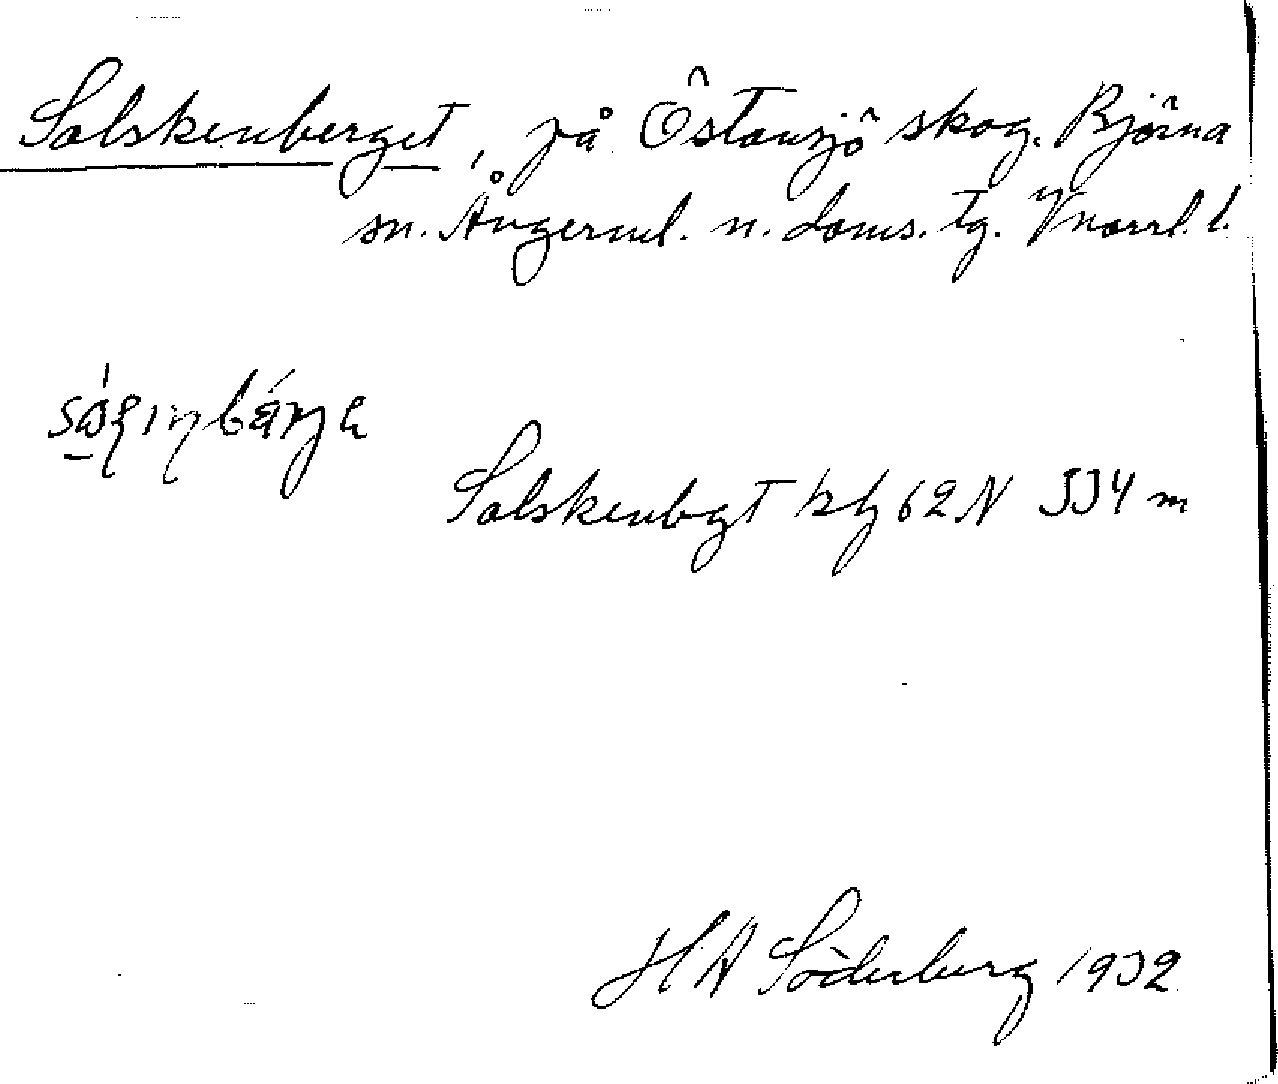 Solskenberget, på Östansjö skog. Björna
sn. Ångerml. n. doms. tg. Vnorrl. l.
Solskenbgt hfg 62 N 334 m
H A Söderberg 1932